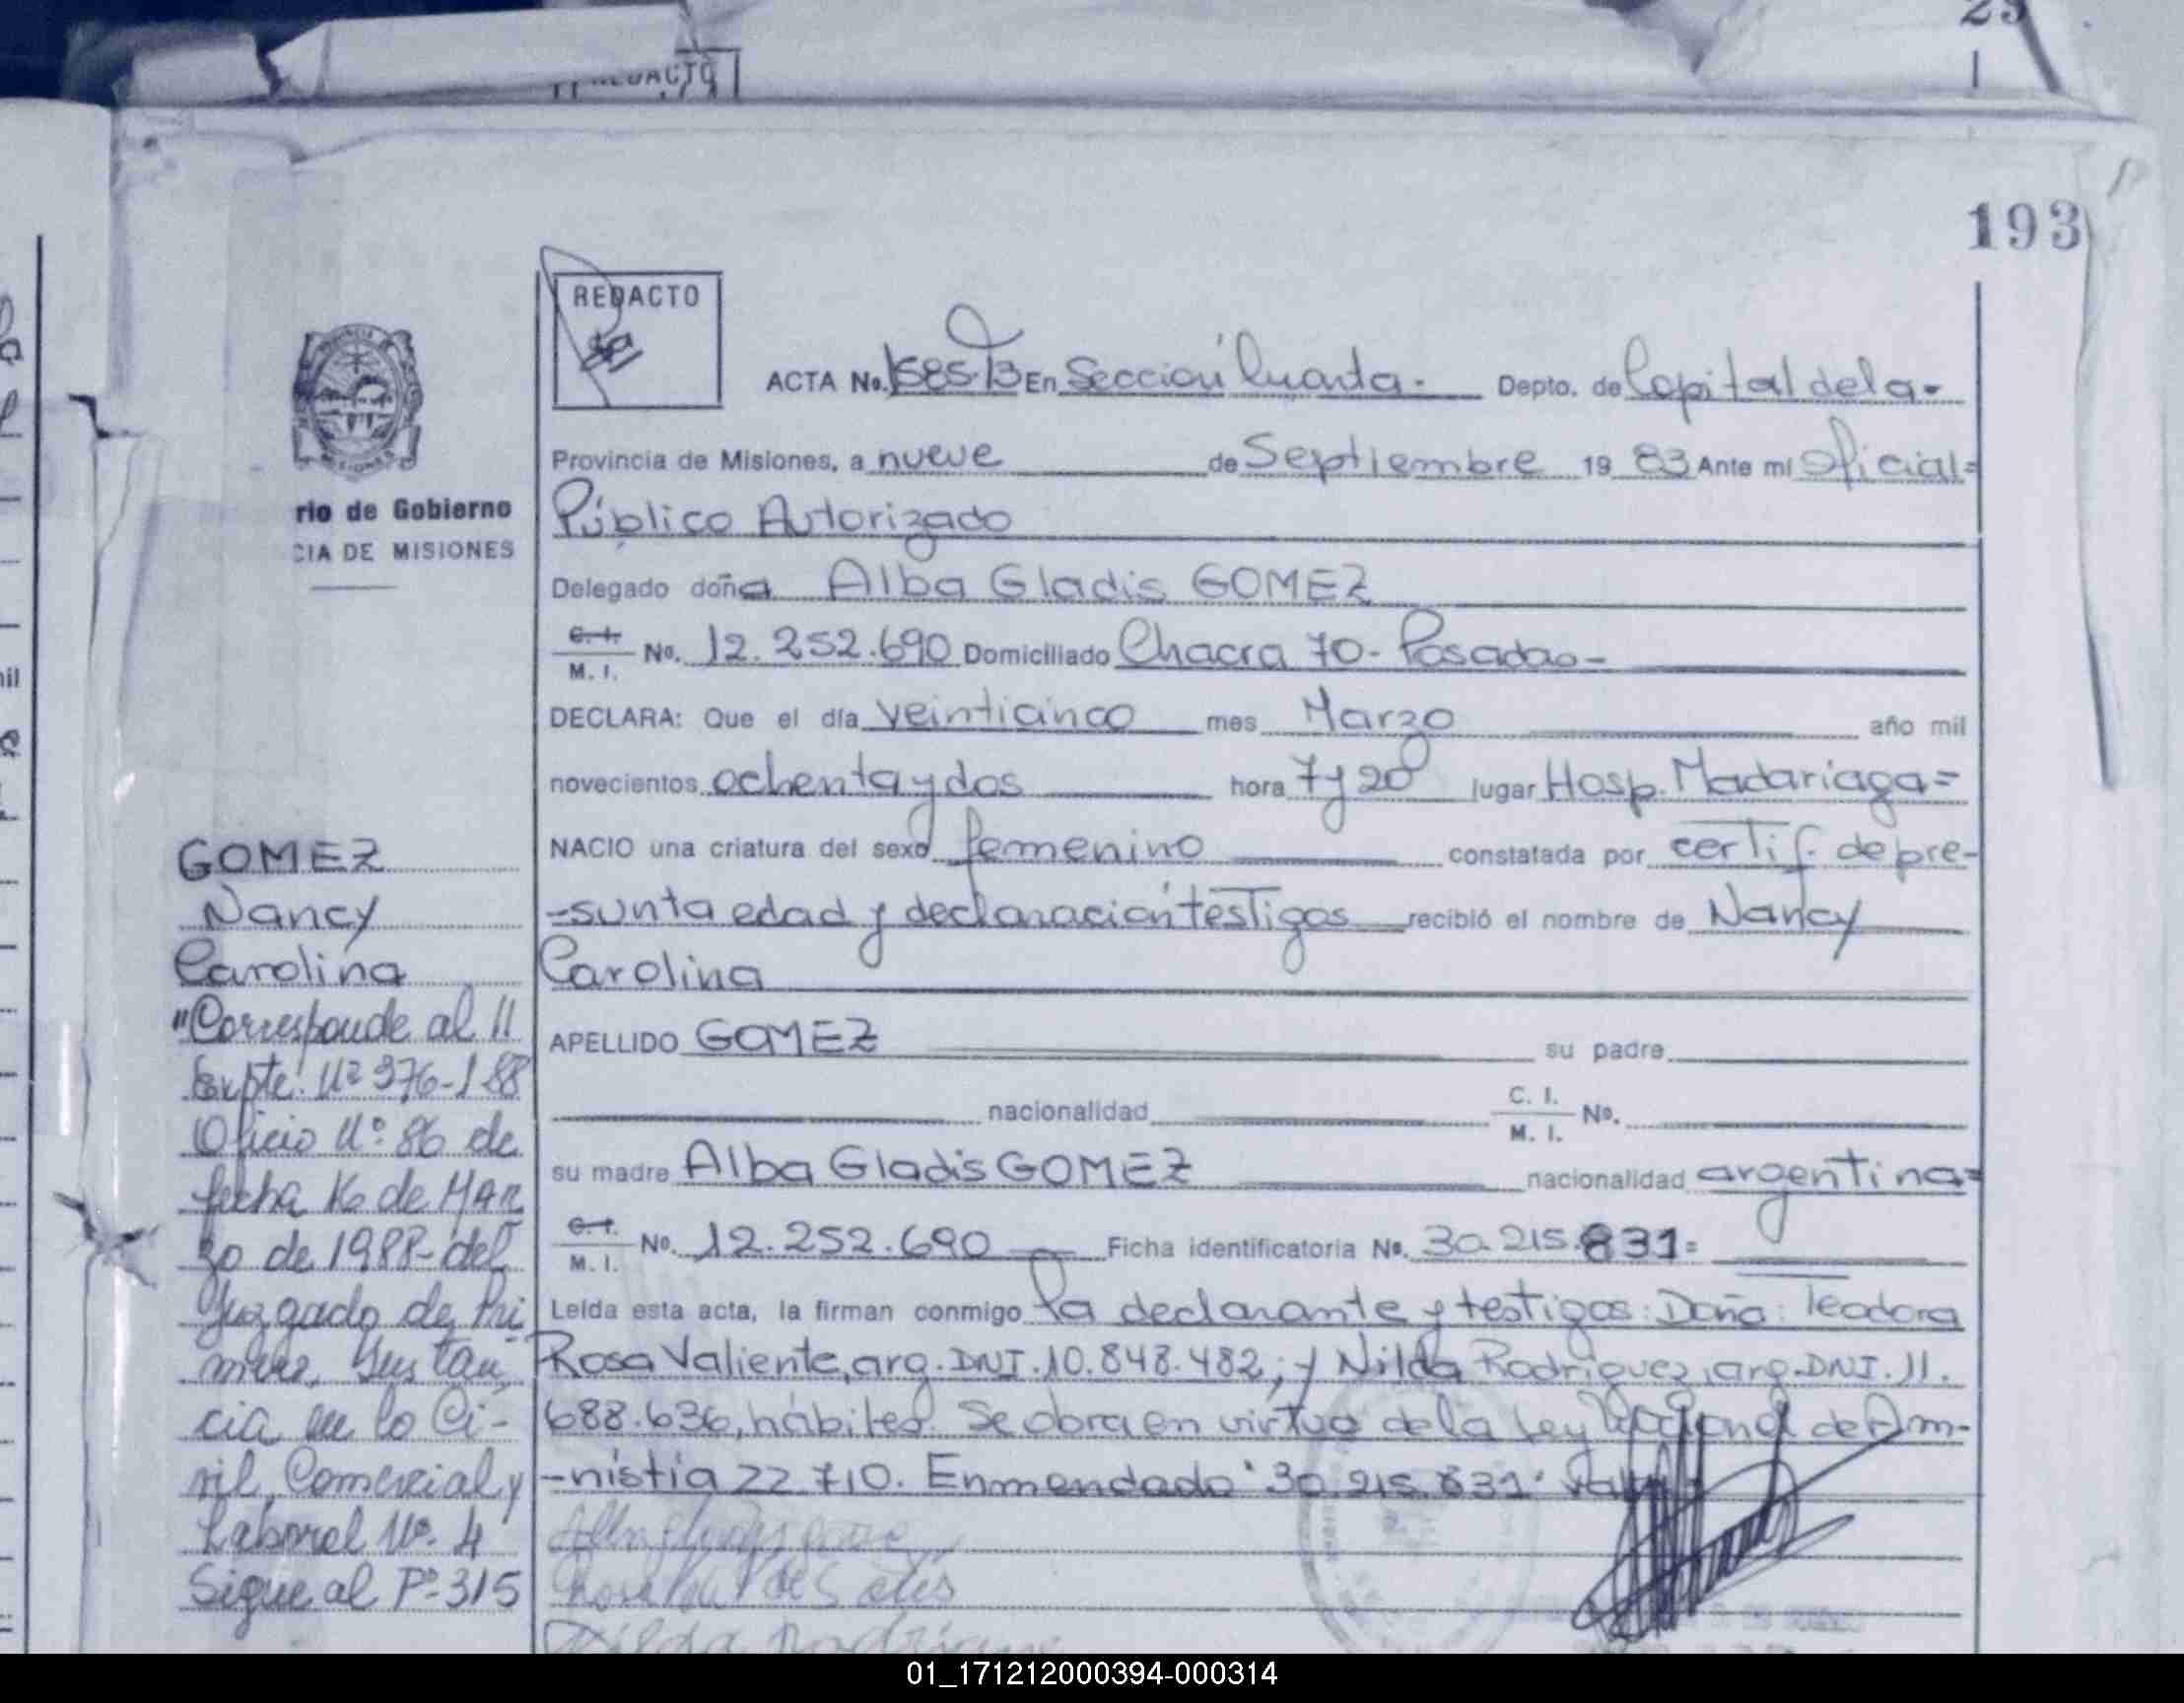 193
REDACTO
ACTA No. 1585-T3 En Sección Cuarta.- Depto. de Capital de la-
Provincia de Misiones, a nueve de Septiembre 19 83 Ante mi Oficial=
Público Autorizado
rio de Gobierno
CIA DE MISIONES
Delegado doña Alba Gladis GOMEZ
C. I.
M. I. No. 12.252.690 Domiciliado Chacra 70- Posadas-
DECLARA: Que el día veinticinco mes Marzo año mil
novecientos ochenta y dos hora 7 y 20 lugar Hosp. Madariaga=
NACIO una criatura del sexo femenino constatada por certif. de pre-
-sunta edad y declaración testigos recibió el nombre de Nancy
Carolina
APELLIDO GOMEZ su padre
nacionalidad C. I.
M. I. No.
su madre Alba Gladis GOMEZ nacionalidad argentina=
C. I.
M. I. No. 12.252.690 Ficha identificatoria No. 30.215.831=
Leida esta acta, la firman conmigo la declarante y testigos: Doña: Teodora
Rosa Valiente, arg. DNI. 10.848.482; y Nilda Rodriguez, arg. DNI. 11.
688.636, hábiles. Se obra en virtud de la Ley Nacional de Am-
-nistia 22 710. Enmendado "30.215.831" vale
Nilda Rodriguez
GOMEZ
Nancy
Carolina
"Corresponde al
Expte. Nº 376-188
Oficio Nº 86 de
fecha 16 de Mar
zo de 1988- del
Juzgado de Pri
mera Instan
cia en lo Ci-
vil, Comercial y
Laboral Nº 4
Sigue al Fº 315
01_171212000394-000314